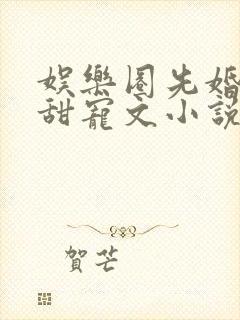 娛樂圈先婚
甜寵文小說
賀芒